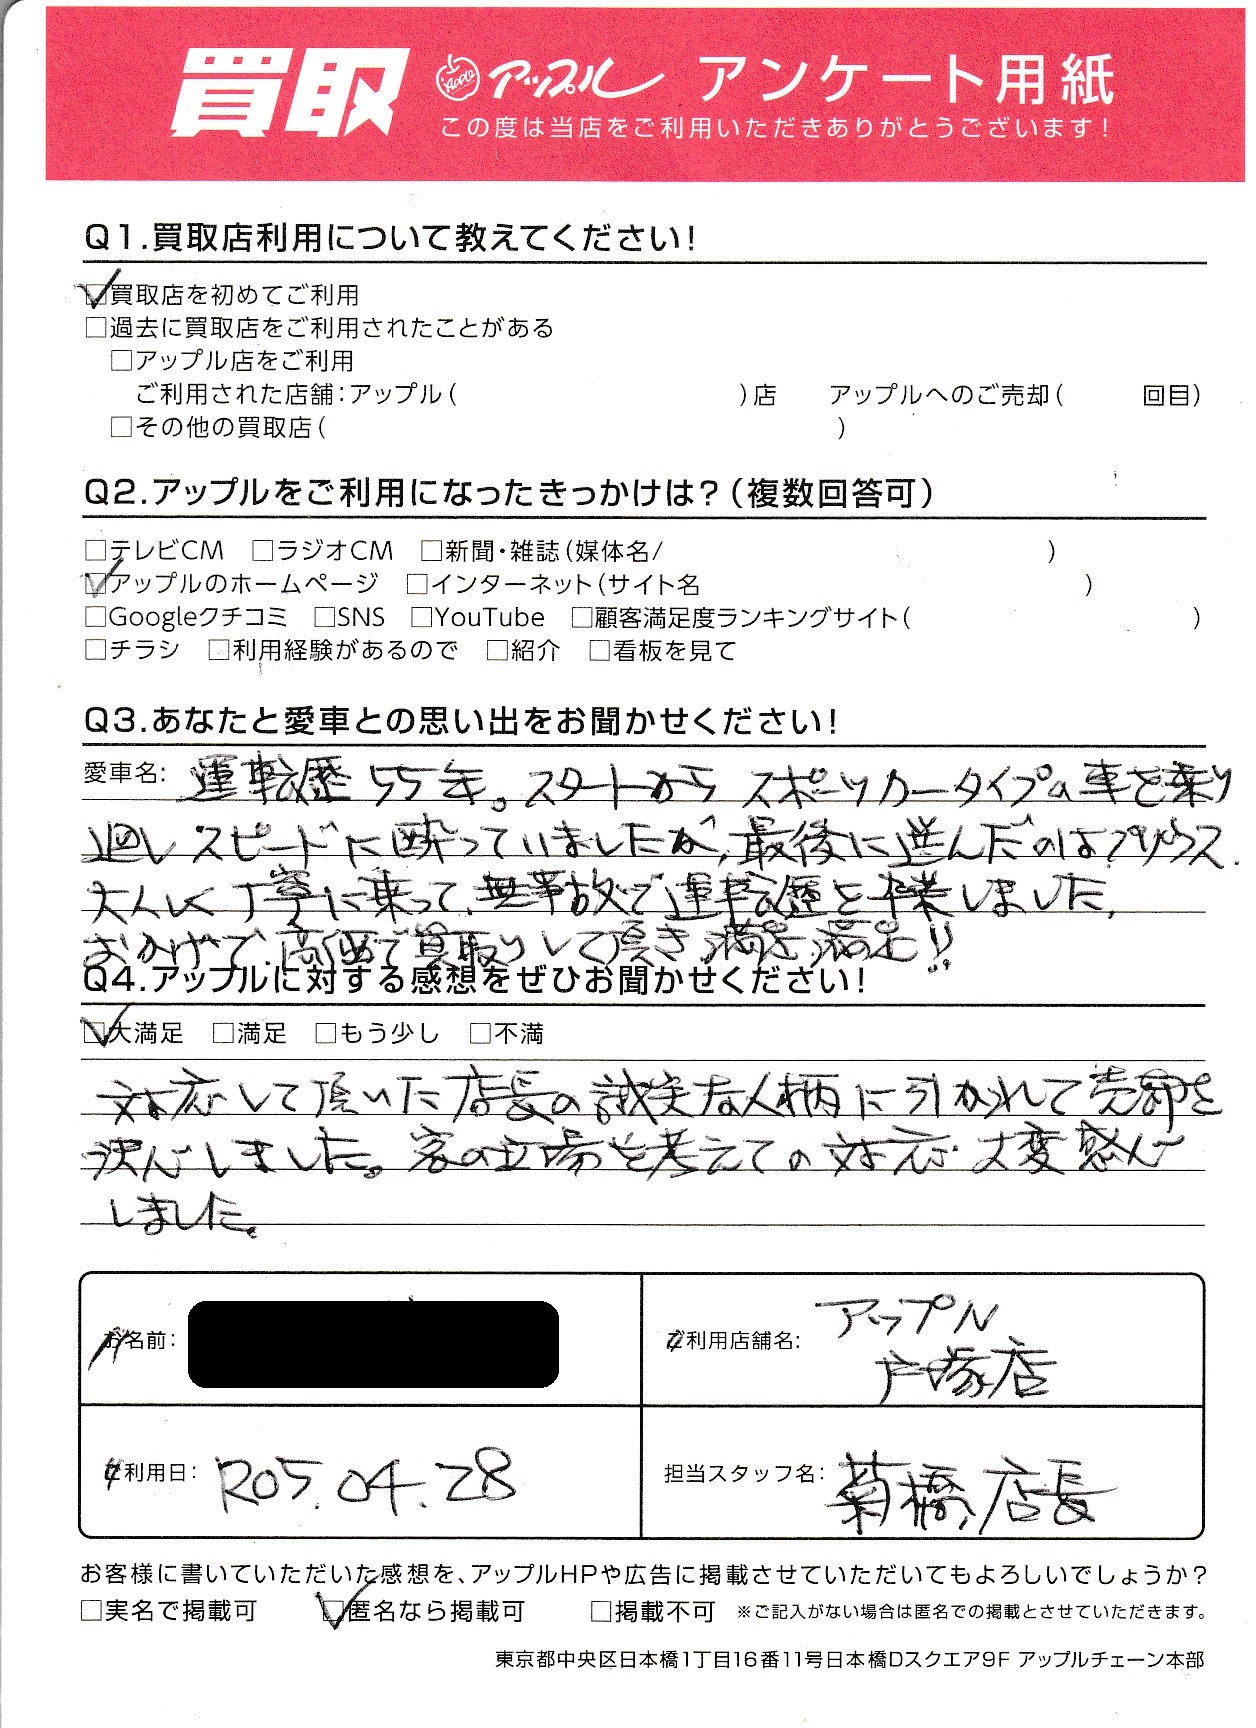 買取 アップル アンケート用紙
この度は当店をご利用いただきありがとうございます!
Q1.買取店利用について教えてください!
☑買取店を初めてご利用
□過去に買取店をご利用されたことがある
□アップル店をご利用
ご利用された店舗:アップル( )店 アップルへのご売却( 回目)
□その他の買取店( )
Q2.アップルをご利用になったきっかけは?(複数回答可)
□テレビCM □ラジオCM □新聞・雑誌(媒体名/ )
☑アップルのホームページ □インターネット(サイト名 )
□Googleクチコミ □SNS □YouTube □顧客満足度ランキングサイト( )
□チラシ □利用経験があるので □紹介 □看板を見て
Q3.あなたと愛車との思い出をお聞かせください!
愛車名: 運転歴55年。スタートから スポーツカータイプの車を乗り
廻し スピードに酔っていましたが、最後に選んだのはプリウス.
大人しく丁寧に乗って、無事故で運転歴を卒業しました,
おかげで、高値で買取りして頂き 満足 満足!!
Q4.アップルに対する感想をぜひお聞かせください!
☑大満足 □満足 □もう少し □不満
対応して頂いた店長の誠実な人柄に引かれて売却を
決心しました。客の立場を考えての対応 大変感心
しました。
お名前:
ご利用店舗名: アップル
戸塚店
ご利用日: R05.04.28
担当スタッフ名: 菊橋店長
お客様に書いていただいた感想を、アップルHPや広告に掲載させていただいてもよろしいでしょうか?
□実名で掲載可 ☑匿名なら掲載可 □掲載不可 ※ご記入がない場合は匿名での掲載とさせていただきます。
東京都中央区日本橋1丁目16番11号日本橋Dスクエア9F アップルチェーン本部